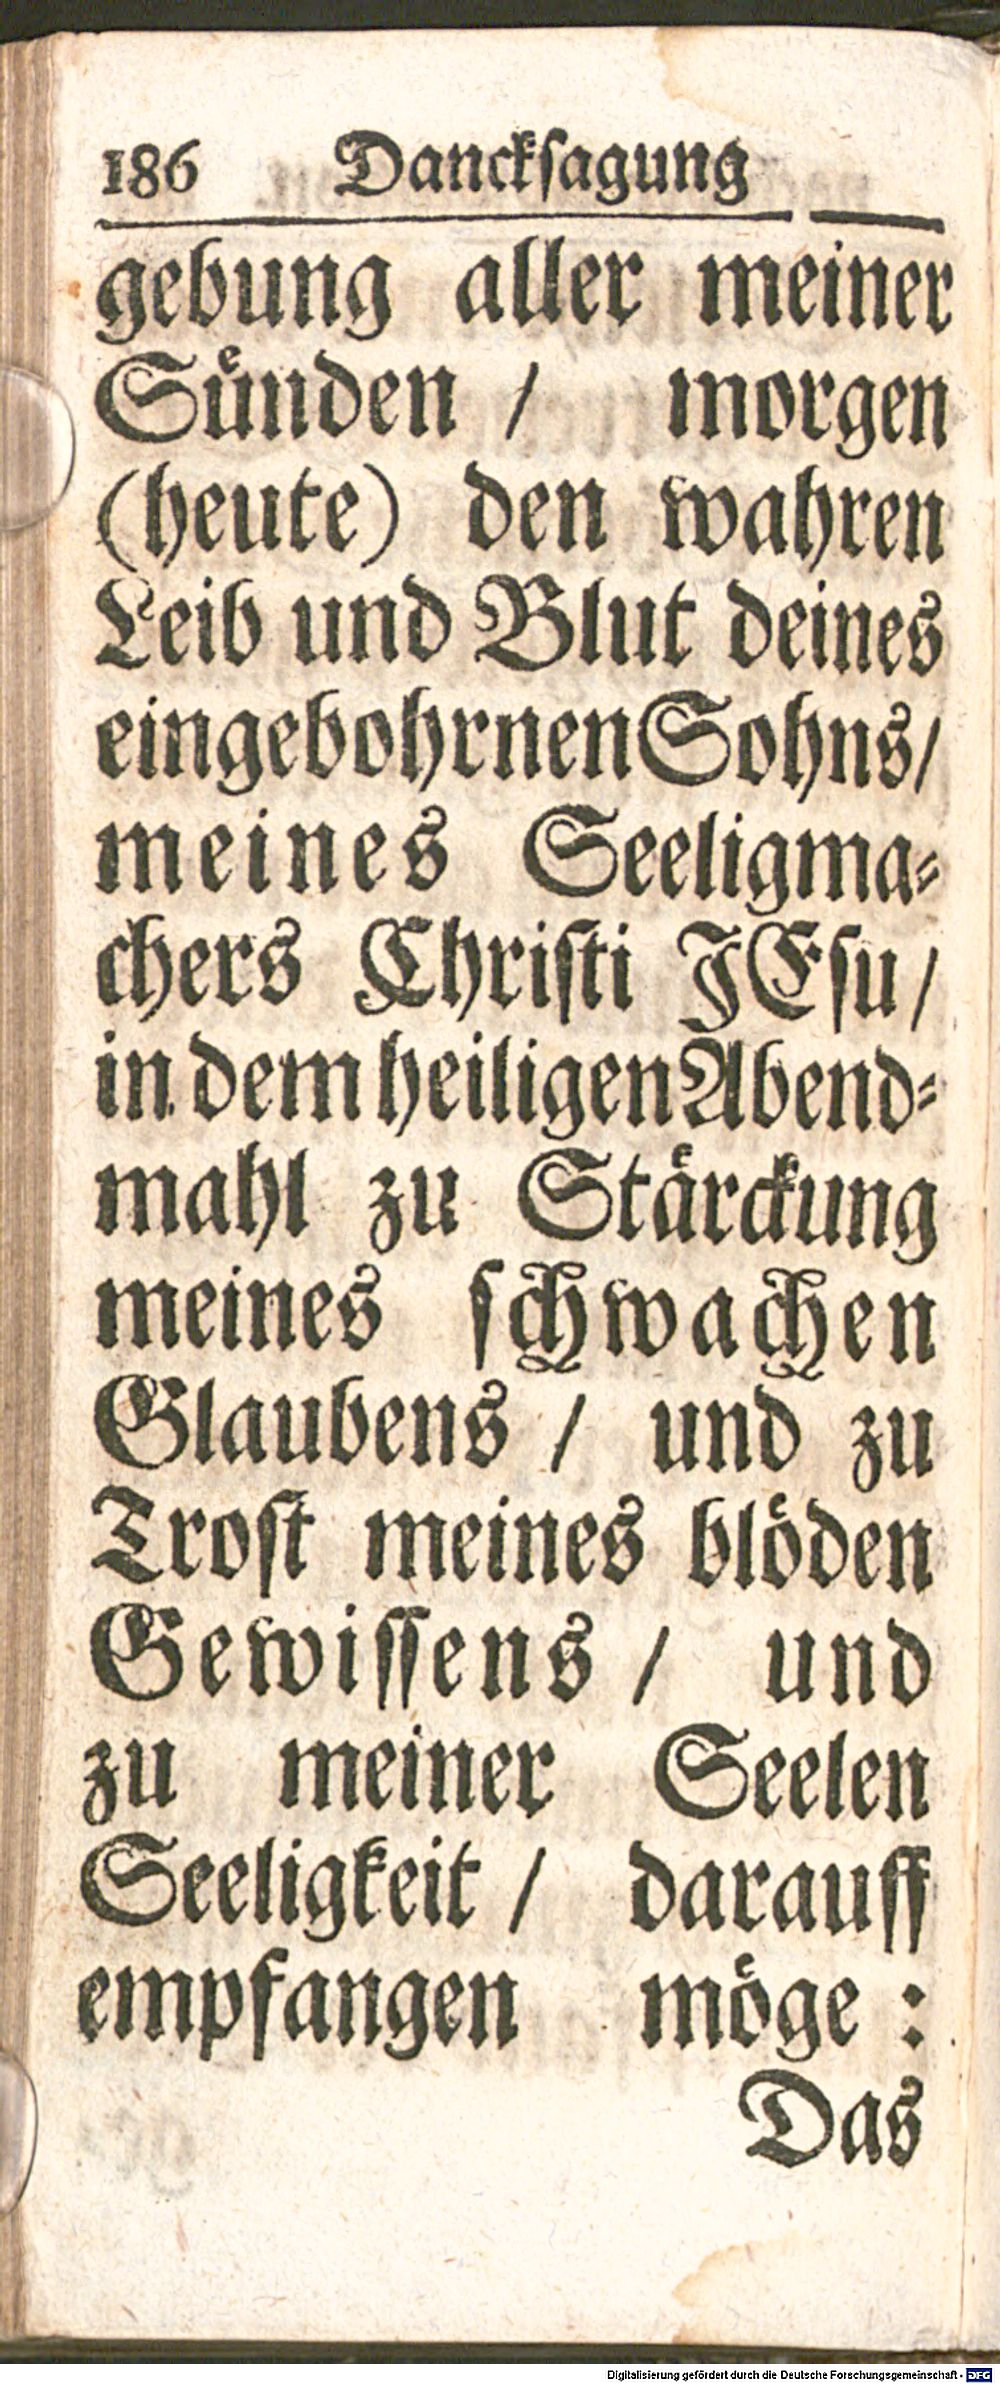 186 Danckſagung
gebung aller meiner
Suͤnden / morgen
(heute) den wahren
Leib und Blut deines
eingebohrnen Sohns/
meines Seeligma⸗
chers Chriſti JEſu/
in dem heiligen Abend⸗
mahl zu Staͤrckung
meines ſchwachen
Glaubens / und zu
Troſt meines bloͤden
Gewiſſens / und
zu meiner Seelen
Seeligkeit / darauff
empfangen moͤge :
Das
Digitalisierung gefördert durch die Deutsche Forschungsgemeinschaft - DFG